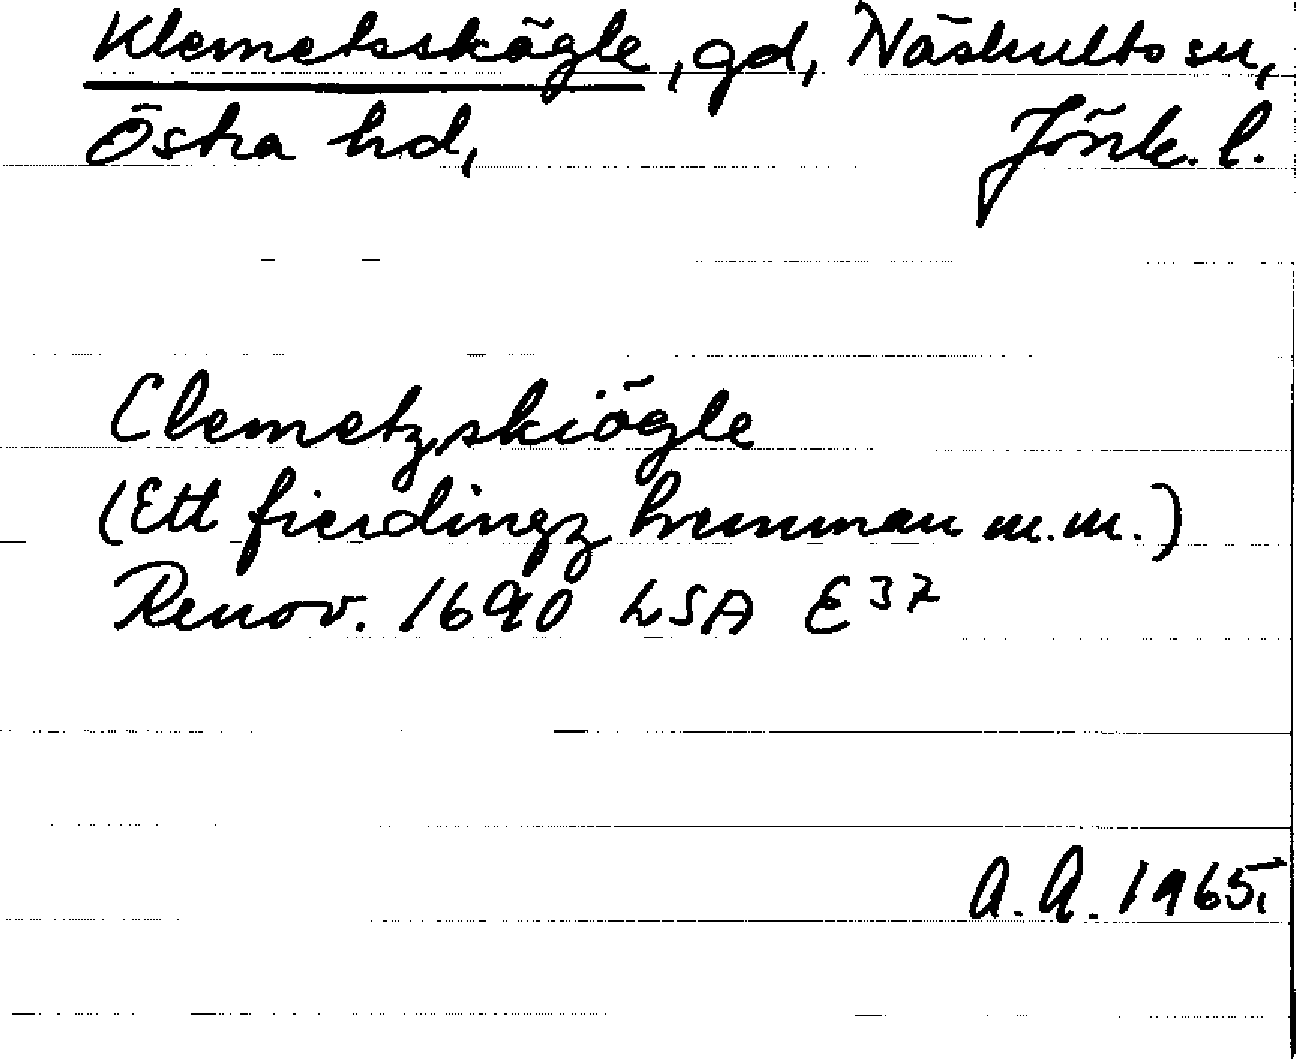 Klemetsskögle, gd, Näshults sn,
Östra hd, Jönk. l.
Clemetzskiögle
(Ett fierdingz hemman m.m.)
Renov. 1690 LSA E 37
A. A. 1965.